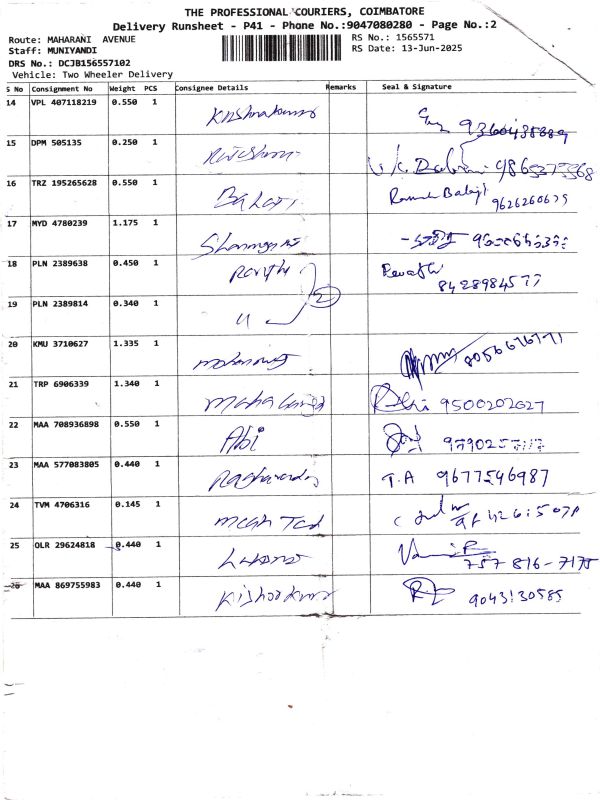 THE PROFESSIONAL COURIERS, COIMBATORE
Delivery Runsheet - P41 - Phone No.:9047080280 - Page No.:2
Route: MAHARANI AVENUE
RS No.: 1565571
Staff: MUNIYANDI
RS Date: 13-Jun-2025
DRS No.: DCJB156557102
Vehicle: Two Wheeler Delivery
S No Consignment No Weight PCS Consignee Details Remarks Seal & Signature
14 VPL 407118219 0.550 1 Krishnakumar
15 DPM 505135 0.250 1
16 TRZ 195265628 0.550 1 Balaji Ramesh Balaji 9626260675
17 MYD 4780239 1.175 1
18 PLN 2389638 0.450 1 Revathi 8428984577
19 PLN 2389814 0.340 1 2
20 KMU 3710627 1.335 1
21 TRP 6906339 1.340 1 9500202627
22 MAA 708936898 0.550 1 Abi
23 MAA 577083805 0.440 1 T.A 9677546987
24 TVM 4706316 0.145 1
25 OLR 29624818 0.440 1 757 816-7175
26 MAA 869755983 0.440 1 Kishorkumar 9043130585